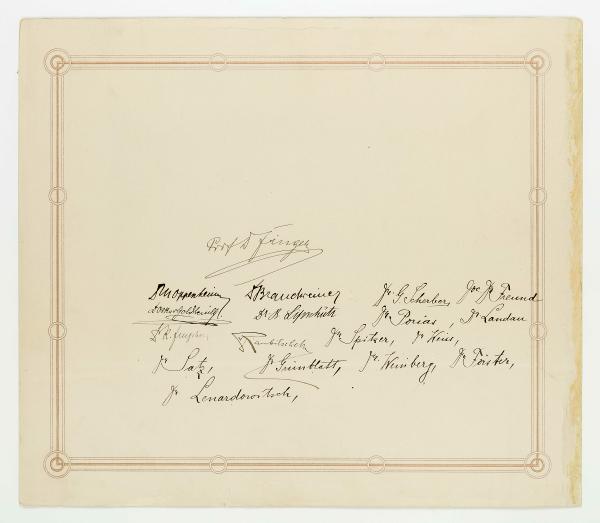 Prof Dr Finger
Dr M Oppenheim Dr Brandweiner Dr. G. Scherber, Doc Dr Freund
Dr B. Lipschütz Dr. Porias, Dr Landau
Dr Spitzer, Dr Kius,
Dr Satz, Dr Grünblatt, Dr. Weinberg, Dr Förster,
Dr Lenardowitsch,